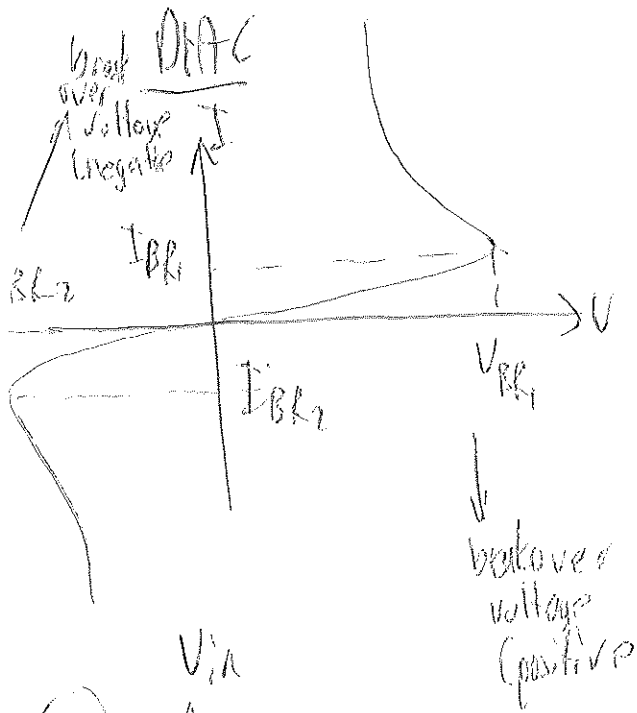 DIAC
break
over
voltage
(negative
I
I_BR1
BR2
V
V_BR1
I_BR2
breakover
voltage
(positive
Vin